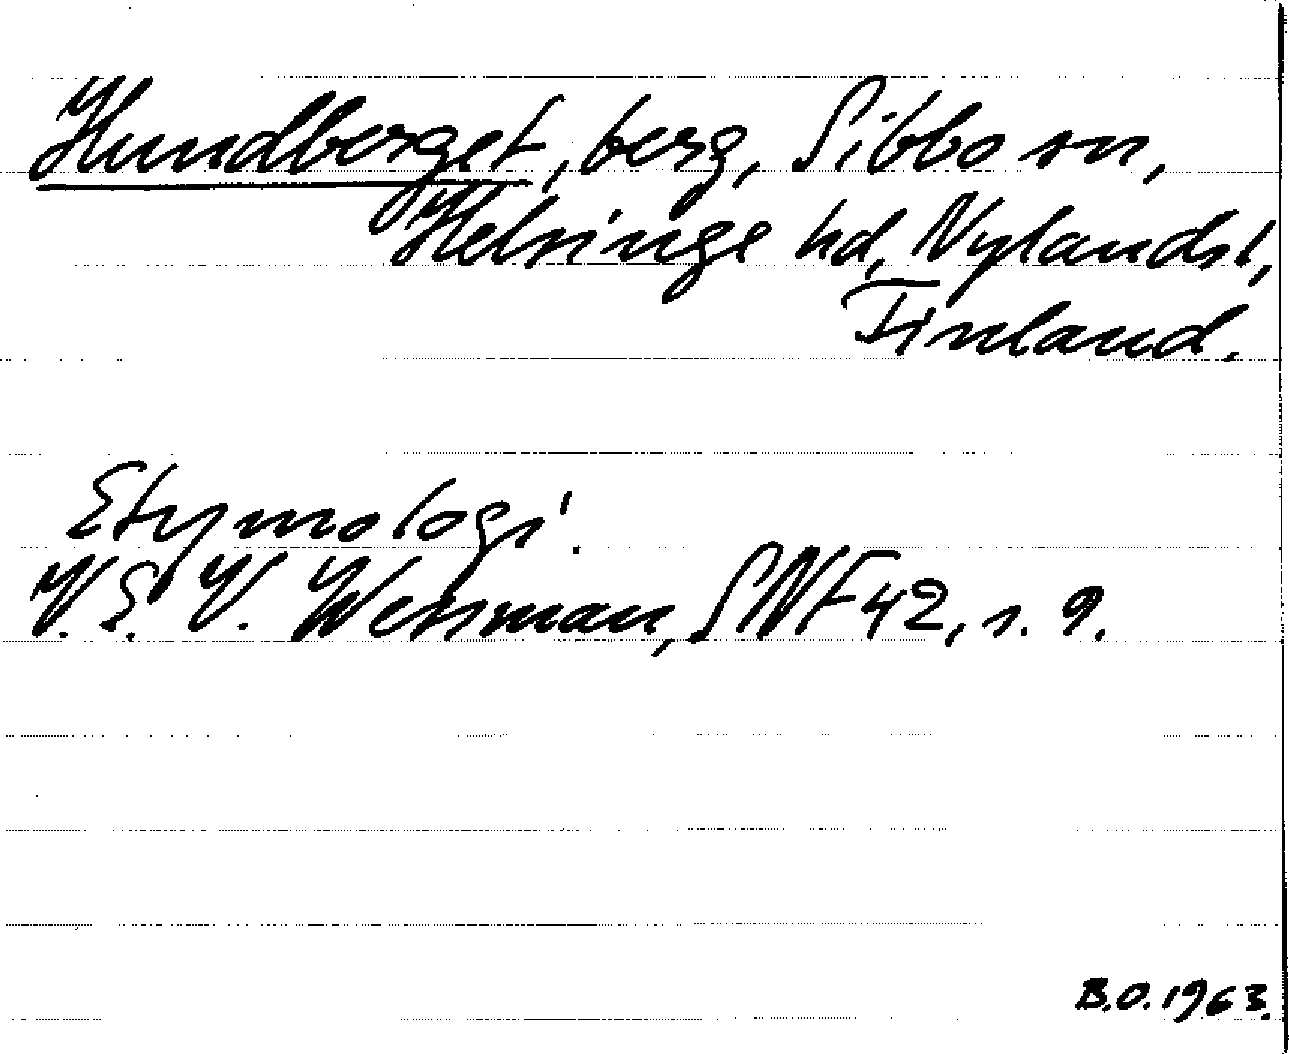 Hundberget, berg, Sibbo sn,
Helsinge hd, Nylands l,
Finland.
Etymologi.
V. E. V. Wessman, SNF 42, s. 9.
B.O. 1963.